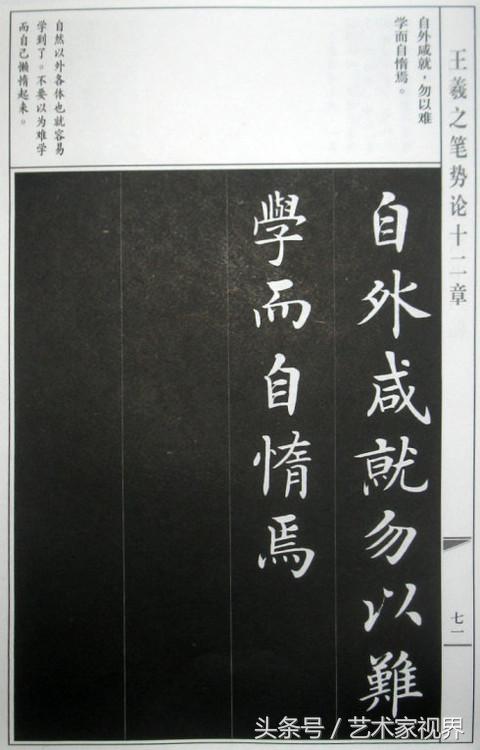 王羲之笔势论十二章
七一
自外咸就，勿以难
学而自惰焉。
自然以外各体也就容易
学到了。不要以为难学
而自己懒惰起来。
自外咸就勿以難
學而自惰焉
头条号／艺术家视界